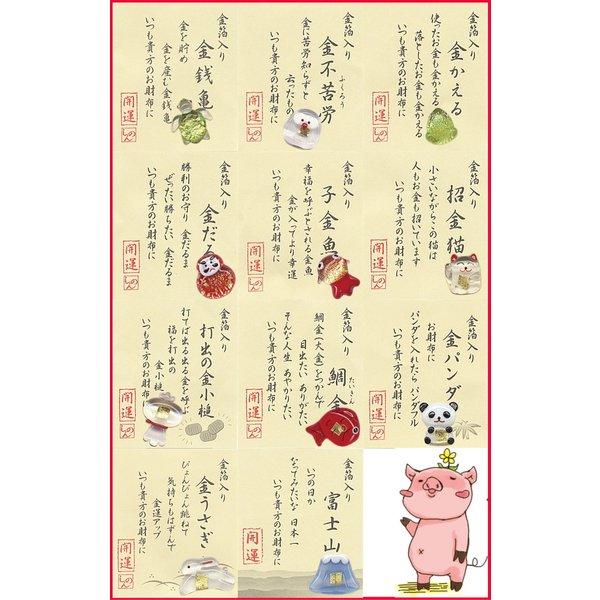 金箔入り
金銭亀
金を貯め
金を産む金銭亀
いつも貴方のお財布に
開運
金箔入り
ふくろう
金不苦労
金に苦労知らずと
云ったもの
いつも貴方のお財布に
開運
金箔入り
金かえる
使ったお金も金かえる
落としたお金も金かえる
いつも貴方のお財布に
開運
金箔入り
金だる
勝利のお守り 金だるま
ぜったい勝ちたい 金だるま
いつも貴方のお財布に
開運
金箔入り
子金魚
幸福を呼ぶとされる金魚
金が入ってより幸運
いつも貴方のお財布に
開運
金箔入り
招金猫
小さいながらこの猫は
人もお金も招いています
いつも貴方のお財布に
開運
金箔入り
打出の金小槌
打てば出る出る金を呼ぶ
福を打出の
金小槌
いつも貴方のお財布に
開運
金箔入り
たいきん
鯛金
鯛金(大金)をつかんで
目出たい ありがたい
そんな人生 あやかりたい
いつも貴方のお財布に
開運
金箔入り
金パンダ
お財布に
パンダを入れたら パンダフル
いつも貴方のお財布に
開運
金箔入り
金うさぎ
ぴょんぴょん跳ねて
気持ちもはずんで
金運アップ
いつも貴方のお財布に
開運
金箔入り
富士山
いつの日か
なってみたいな 日本一
いつも貴方のお財布に
開運